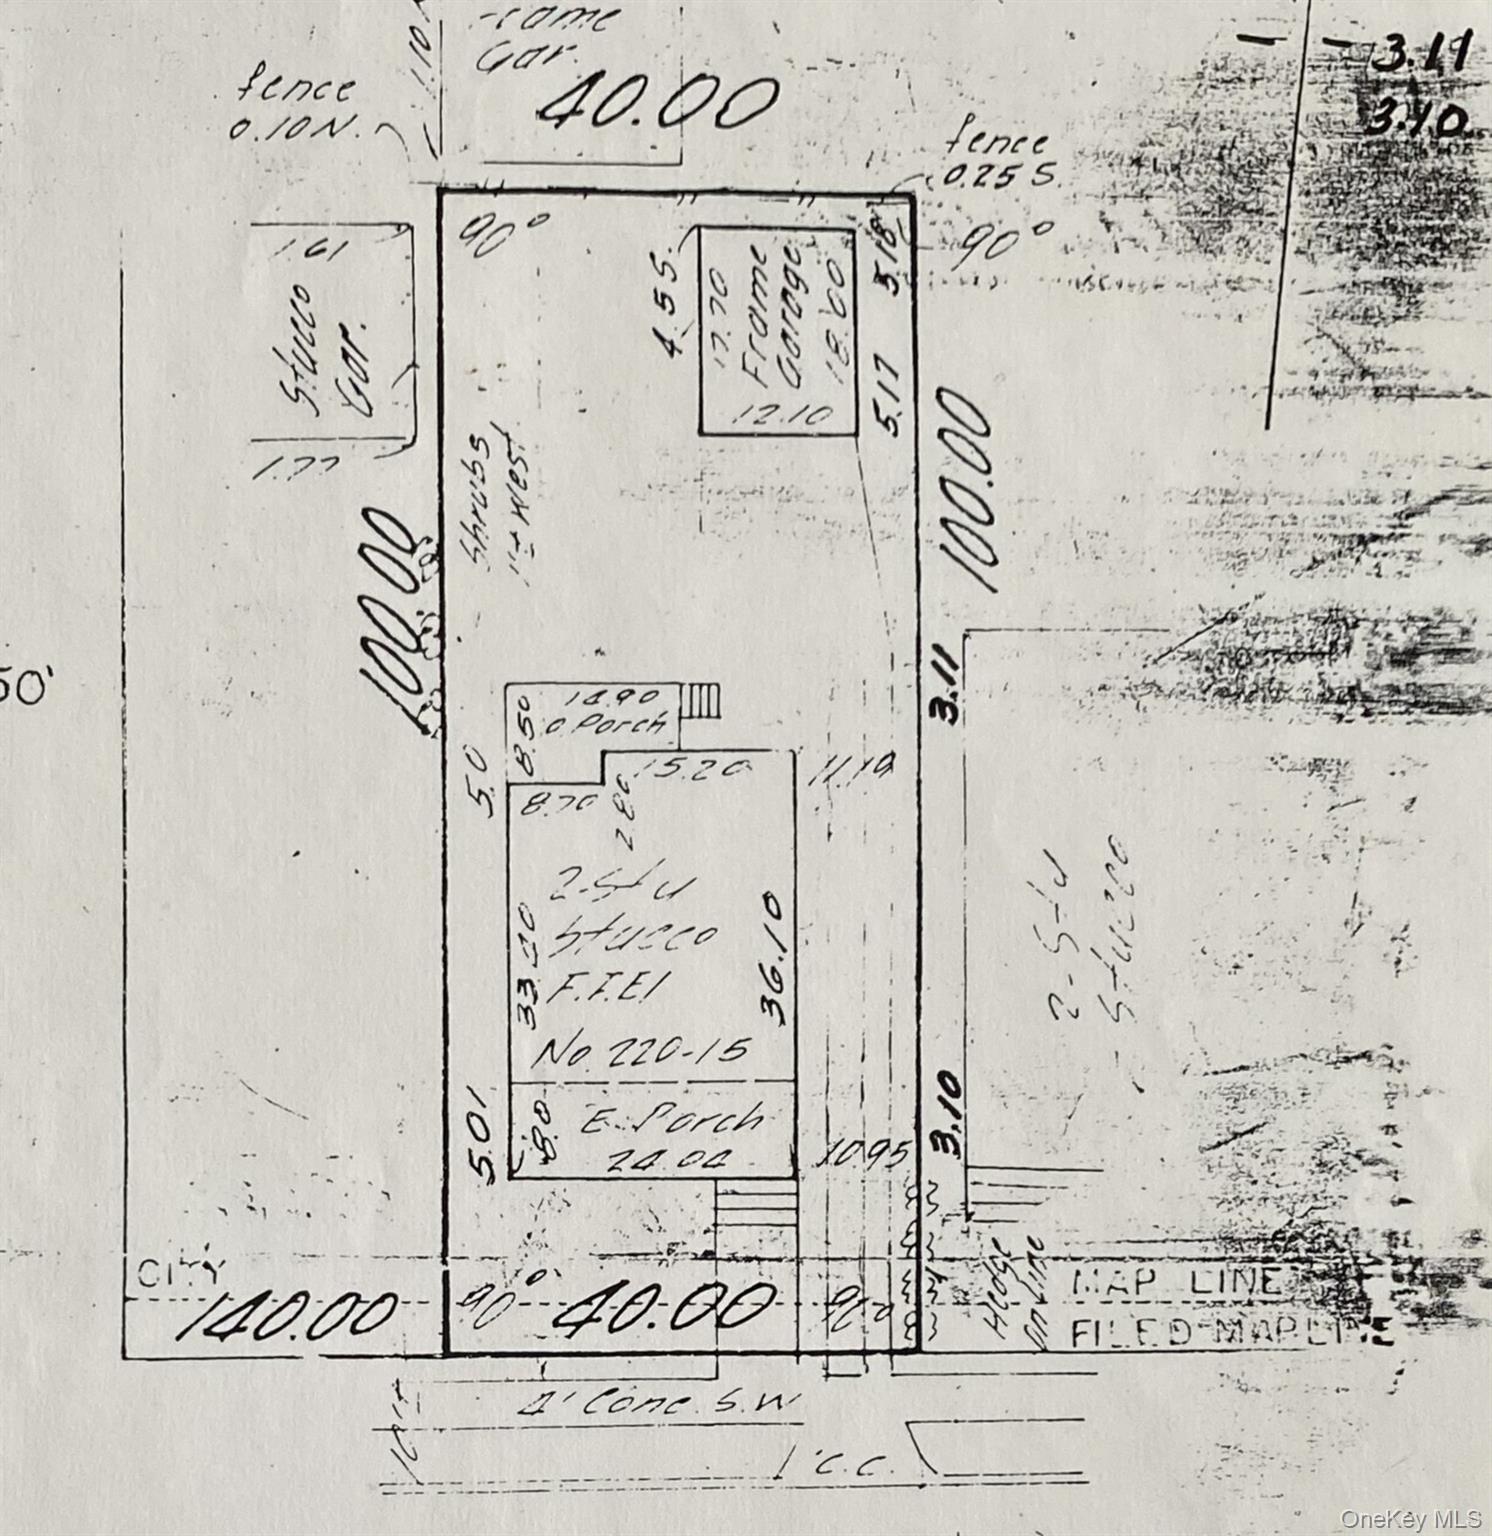 Gar.
40.00
3.11
3.10
fence
0.10 N.
fence
0.25 S.
90°
90°
1.61
Stucco
Gar.
1.77
4.55
17.70
Frame
Garage
18.00
12.10
5.18
5.17
100.00
Shrubs
1'± West
100.00
50'
14.90
o Porch
8.50
5.0
8.70
15.20
2.80
11.19
3.11
2-Sty
Stucco
No. 220-15
36.10
2-Sty
Stucco
E. Porch
24.04
8.0
5.01
10.95
3.10
Hedge
on Line
CITY
MAP LINE
140.00
90°
40.00
90°
FILED MAP LINE
4' Conc. S.W
C.C.
OneKey MLS